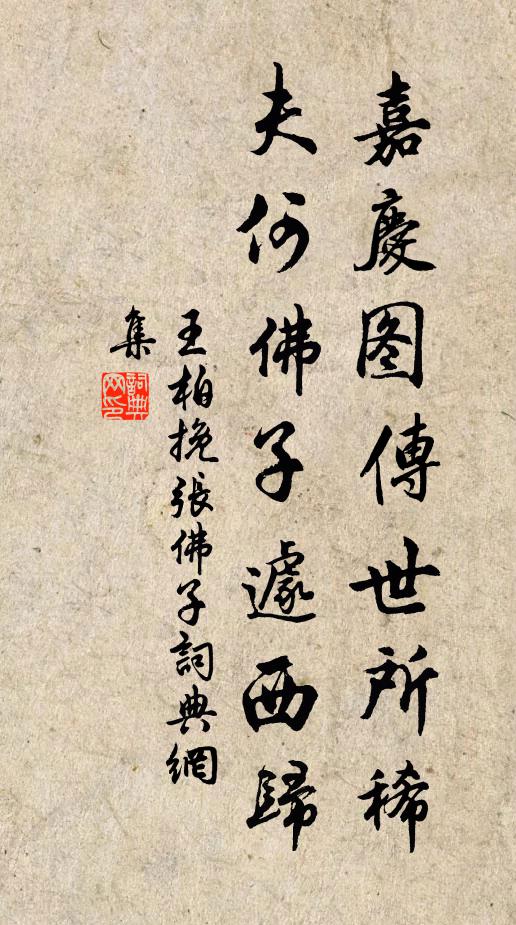 嘉慶图傳世所稀
夫何佛子遽西歸
王柏挽張佛子詞典網
集
詞典
网印